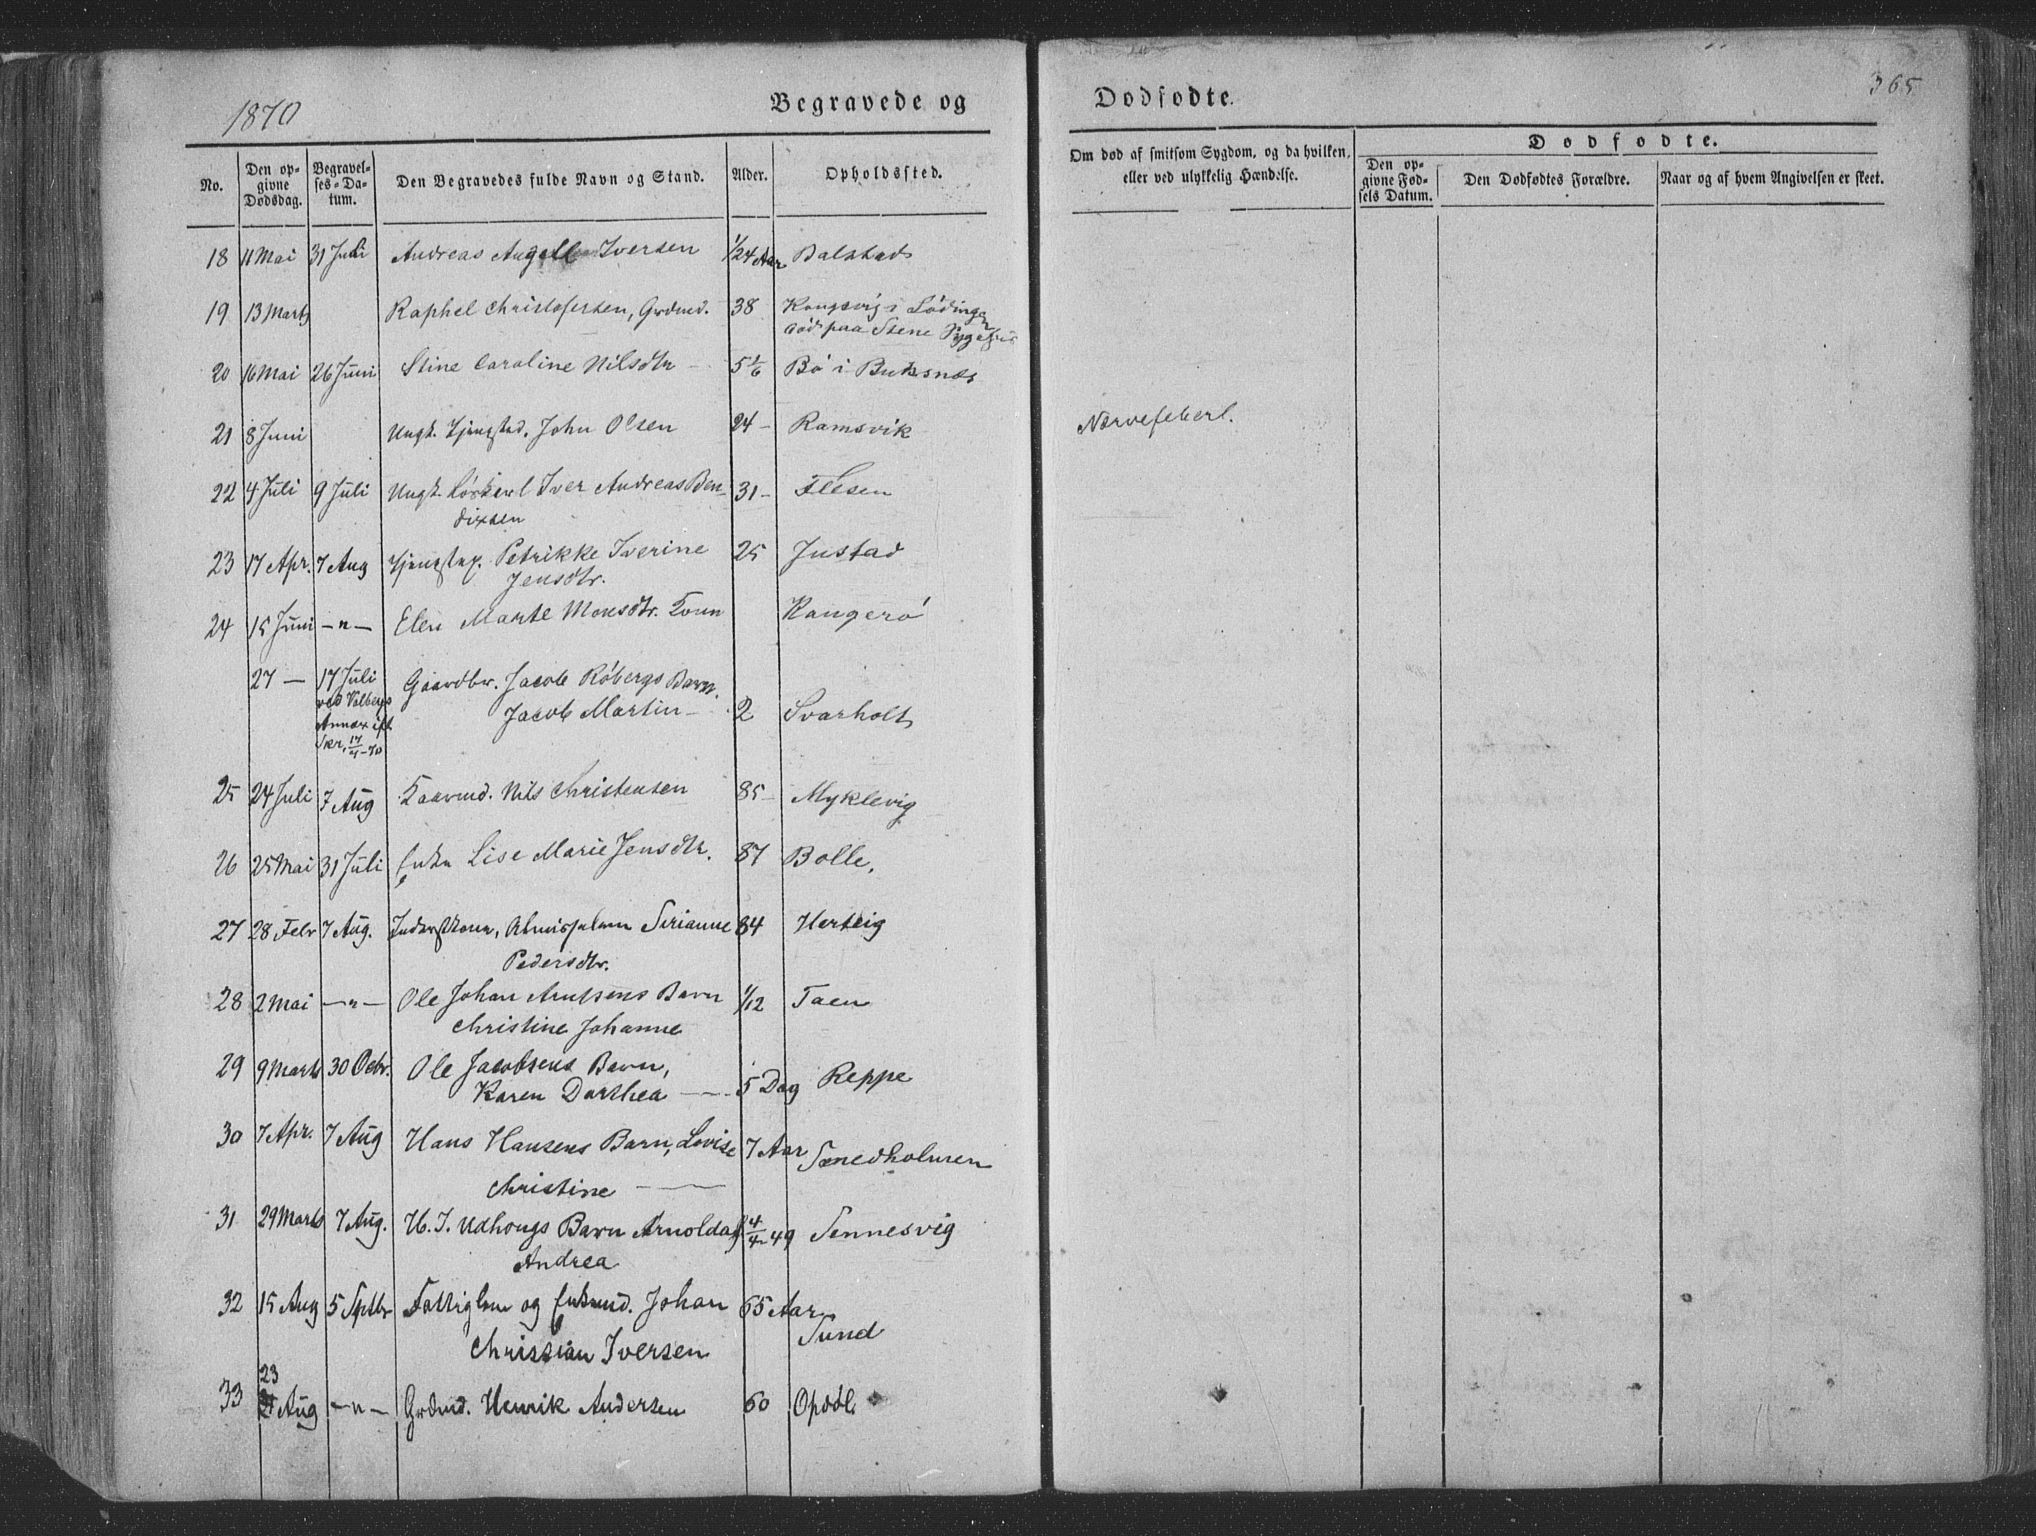 1870
Begravede og
Dødfødte.
365
No.
Den op-
givne
Dødsdag.
Begravel-
ses-Da-
tum.
Den Begravedes fulde Navn og Stand.
Alder.
Opholdssted.
Om død af smitsom Sygdom, og da hvilken,
eller ved ulykkelig Hændelse.
Dødfødte.
Den op-
givne Fød-
sels Datum.
Den Dødfødtes Forældre.
Naar og af hvem Angivelsen er skeet.
18 11 Mai 31 Juli Andreas Angell Iversen 1/24 Aar Balstad
19 13 Marts Raphel Christofersen, Grdmd. 38 Kongsvig i Lødingen
død paa Stene Sygehus
20 16 Mai 26 Juni Stine Caroline Nilsdtr - 5 1/6 Bø i Buksnæs
21 8 Juni Ungk. Tjenested. John Olsen 24 - Ramsvik Nervefeber
22 4 Juli 9 Juli Ungk. Iver Andreas Ben- 31 - Flesen
dixsen
23 17 Apr. 7 Aug Petrikke Iverine 25 Justad
Jensdtr.
24 15 Juni -"- Elen Marte Monsdtr. Kangerø
27 - 17 Juli Gaardbr. Jacob Røbergs Barn,
ved Valbergs
Jacob Martin - 2 Svarholt
Annex ifl.
Skr. 17/4-70
25 24 Juli 7 Aug Kaarmd. Nils Christensen 85 - Myklevig
26 25 Mai 31 Juli Enke Lise Marie Jensdtr. 87 Bolle.
27 28 Febr 7 Aug. Inderstkone, Serianne 84 Hertvig
Pedersdtr.
28 2 Mai -"- Ole Johan Arntsens Barn 1/12 Taen
Christine Johanne
29 9 Marts 30 Octbr. Ole Jacobsens Barn,
Karen Dorthea - 5 Dag Reppe
30 7 Apr. 7 Aug Hans Hansens Barn, Lovise 7 Aar Sandholmen
Christine -
31 29 Marts 7 Aug. H. J. Udhougs Barn Arnolda f. 4/4-49 Sennesvig
Andrea
32 15 Aug 5 Septbr Fattiglem og Enkemd. Johan 65 Aar
Sund
Christian Iversen
23
33 Aug -"- Grdmd. Henrik Andersen 60 Opdøl